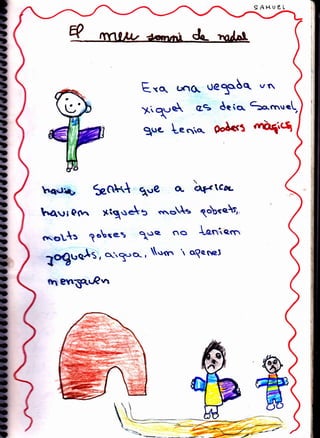 SAMUEL
El meu somni de nadal
Era una vegada un
xiquet es deia Samuel,
que tenia poders màgics,
havie sentit que a àfrica
haviem xiquets molts pobrets,
molts pobres que no teniem
joguets, aigua, llum i apenes
menjaven